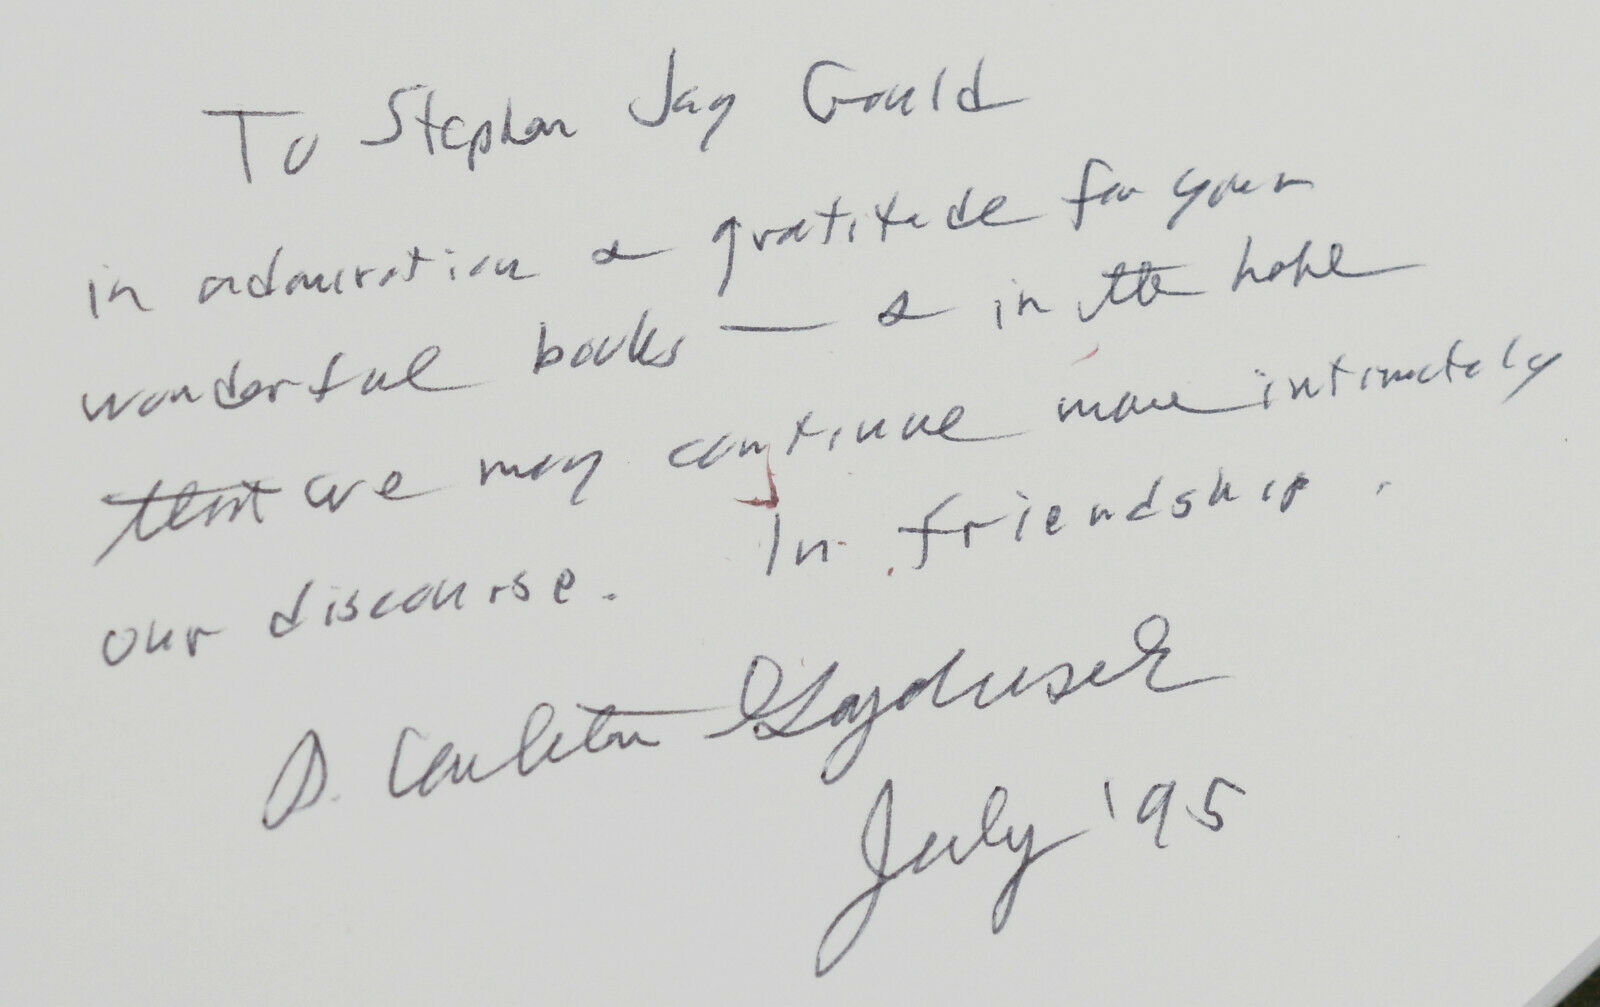 To Stephan Jay Gould
in admiration & gratitude for your
wonderful books — & in the hope
that we may continue more intimately
our discourse. In friendship.
D. Carleton Gajdusek
July '95